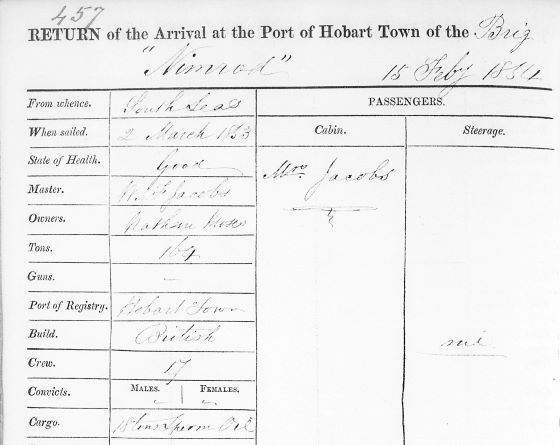 457
RETURN of the Arrival at the Port of Hobart Town of the Brig
"Nimrod" 15 Feby 1854
PASSENGERS.
Cabin. Steerage.
From whence. South Seas
When sailed. 2 March 1853
State of Health. Good
Master. W. F Jacobs
Owners. Nathan Moses
Tons. 164
Guns. —
Port of Registry. Hobart Town
Build. British
Crew. 17
Convicts. MALES. FEMALES.
Cargo. tons Sperm Oil
Mrs Jacobs
nil